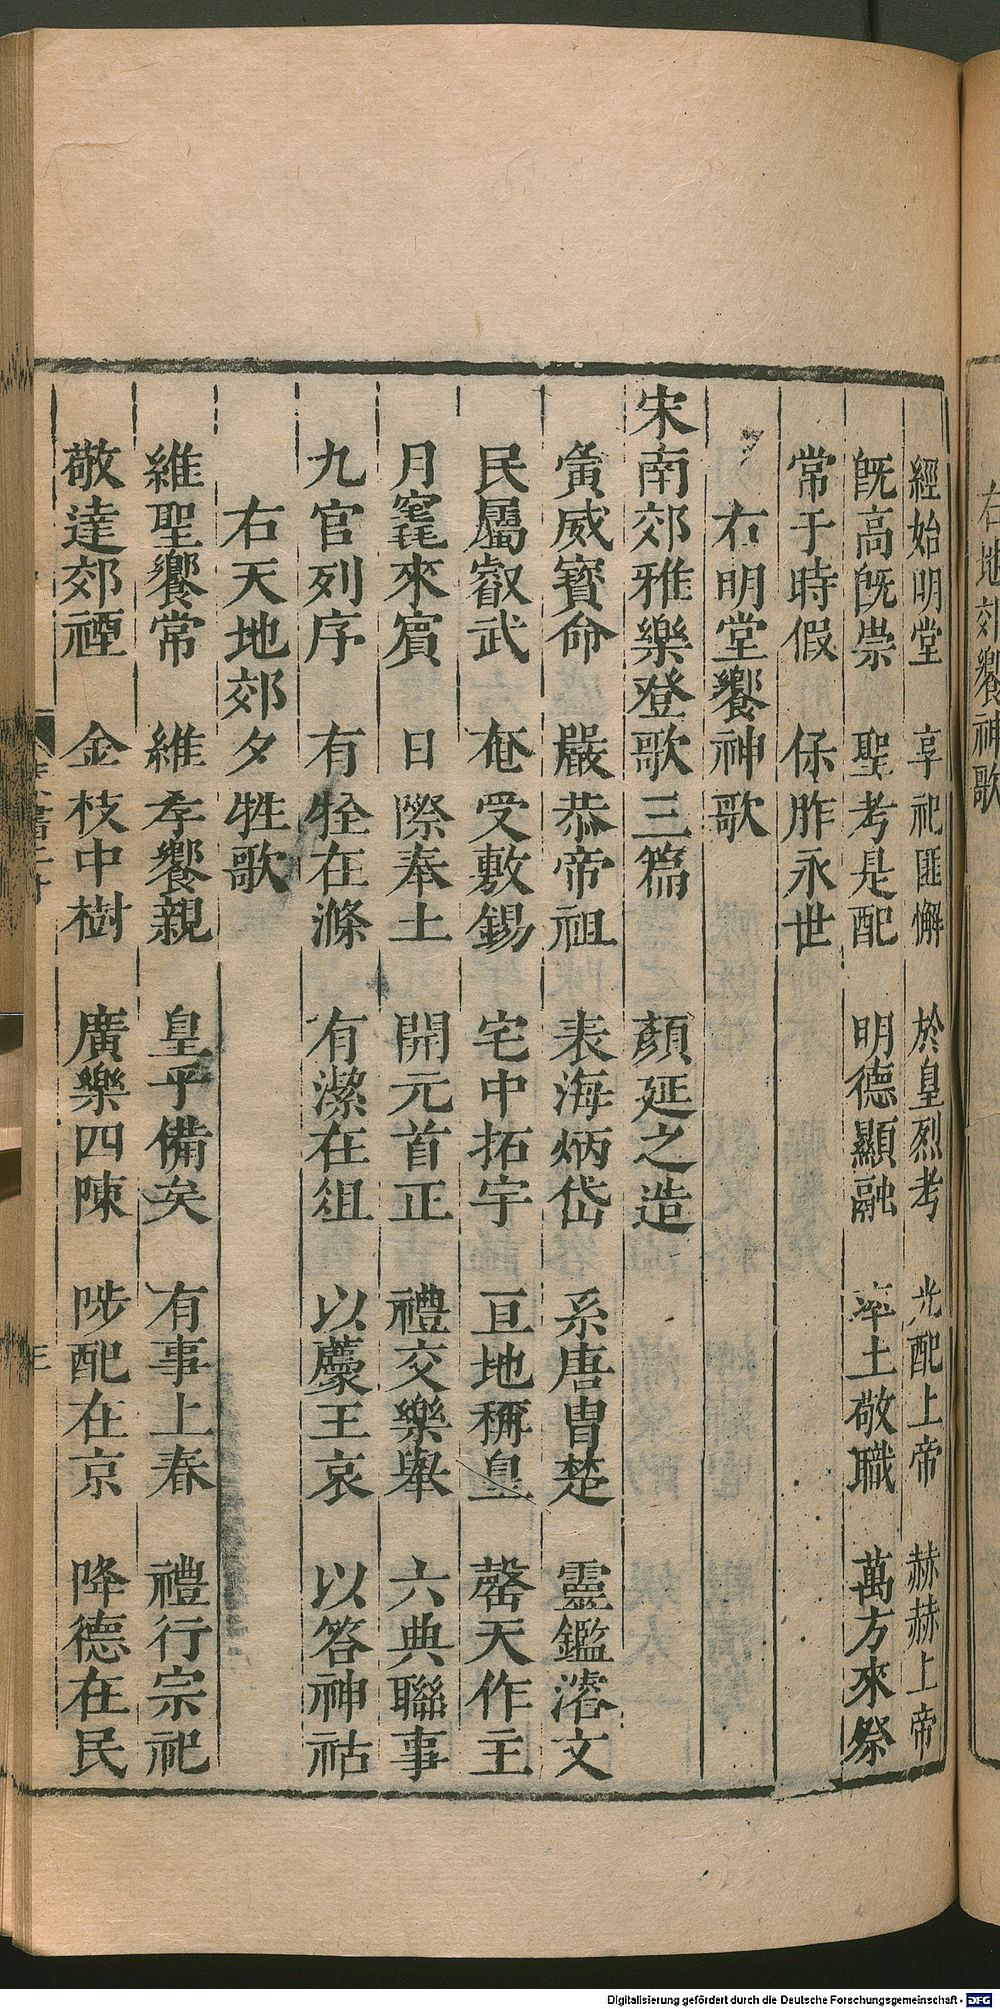 經始明堂 享祀匪懈 於皇烈考 光配上帝 赫赫上帝
旣高旣崇 聖考是配 明德顯融 率土敬職 萬方來祭
常于時假 保胙永世
右明堂饗神歌
宋南郊雅樂登歌三篇 顏延之造
夤威寶命 嚴恭帝祖 表海炳岱 系唐胄楚 靈鑑濬文
民屬叡武 奄受敷錫 宅中拓宇 亘地稱皇 罄天作主
月竁來賔 日際奉土 開元首正 禮交樂舉 六典聯事
九官列序 有牷在滌 有潔在俎 以薦王衷 以答神祜
右天地郊夕牲歌
維聖饗帝 維孝饗親 皇乎備矣 有事上春 禮行宗祀
敬達郊禋 金枝中樹 廣樂四陳 陟配在京 降德在民
右地郊饗神歌
Digitalisierung gefördert durch die Deutsche Forschungsgemeinschaft - DFG